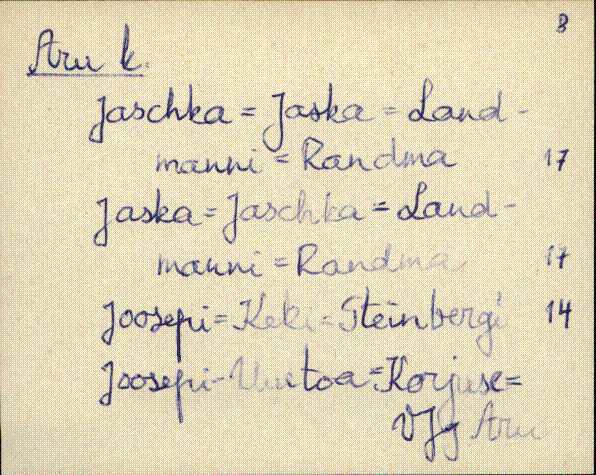 8
Aru k.
Jaschka = Jaska = Land-
manni = Randma 17
Jaska = Jaschka = Land-
manni = Randma 17
Joosepi = Keki = Steinbergi 14
Joosepi-Uuetoa = Korjuse =
Aru